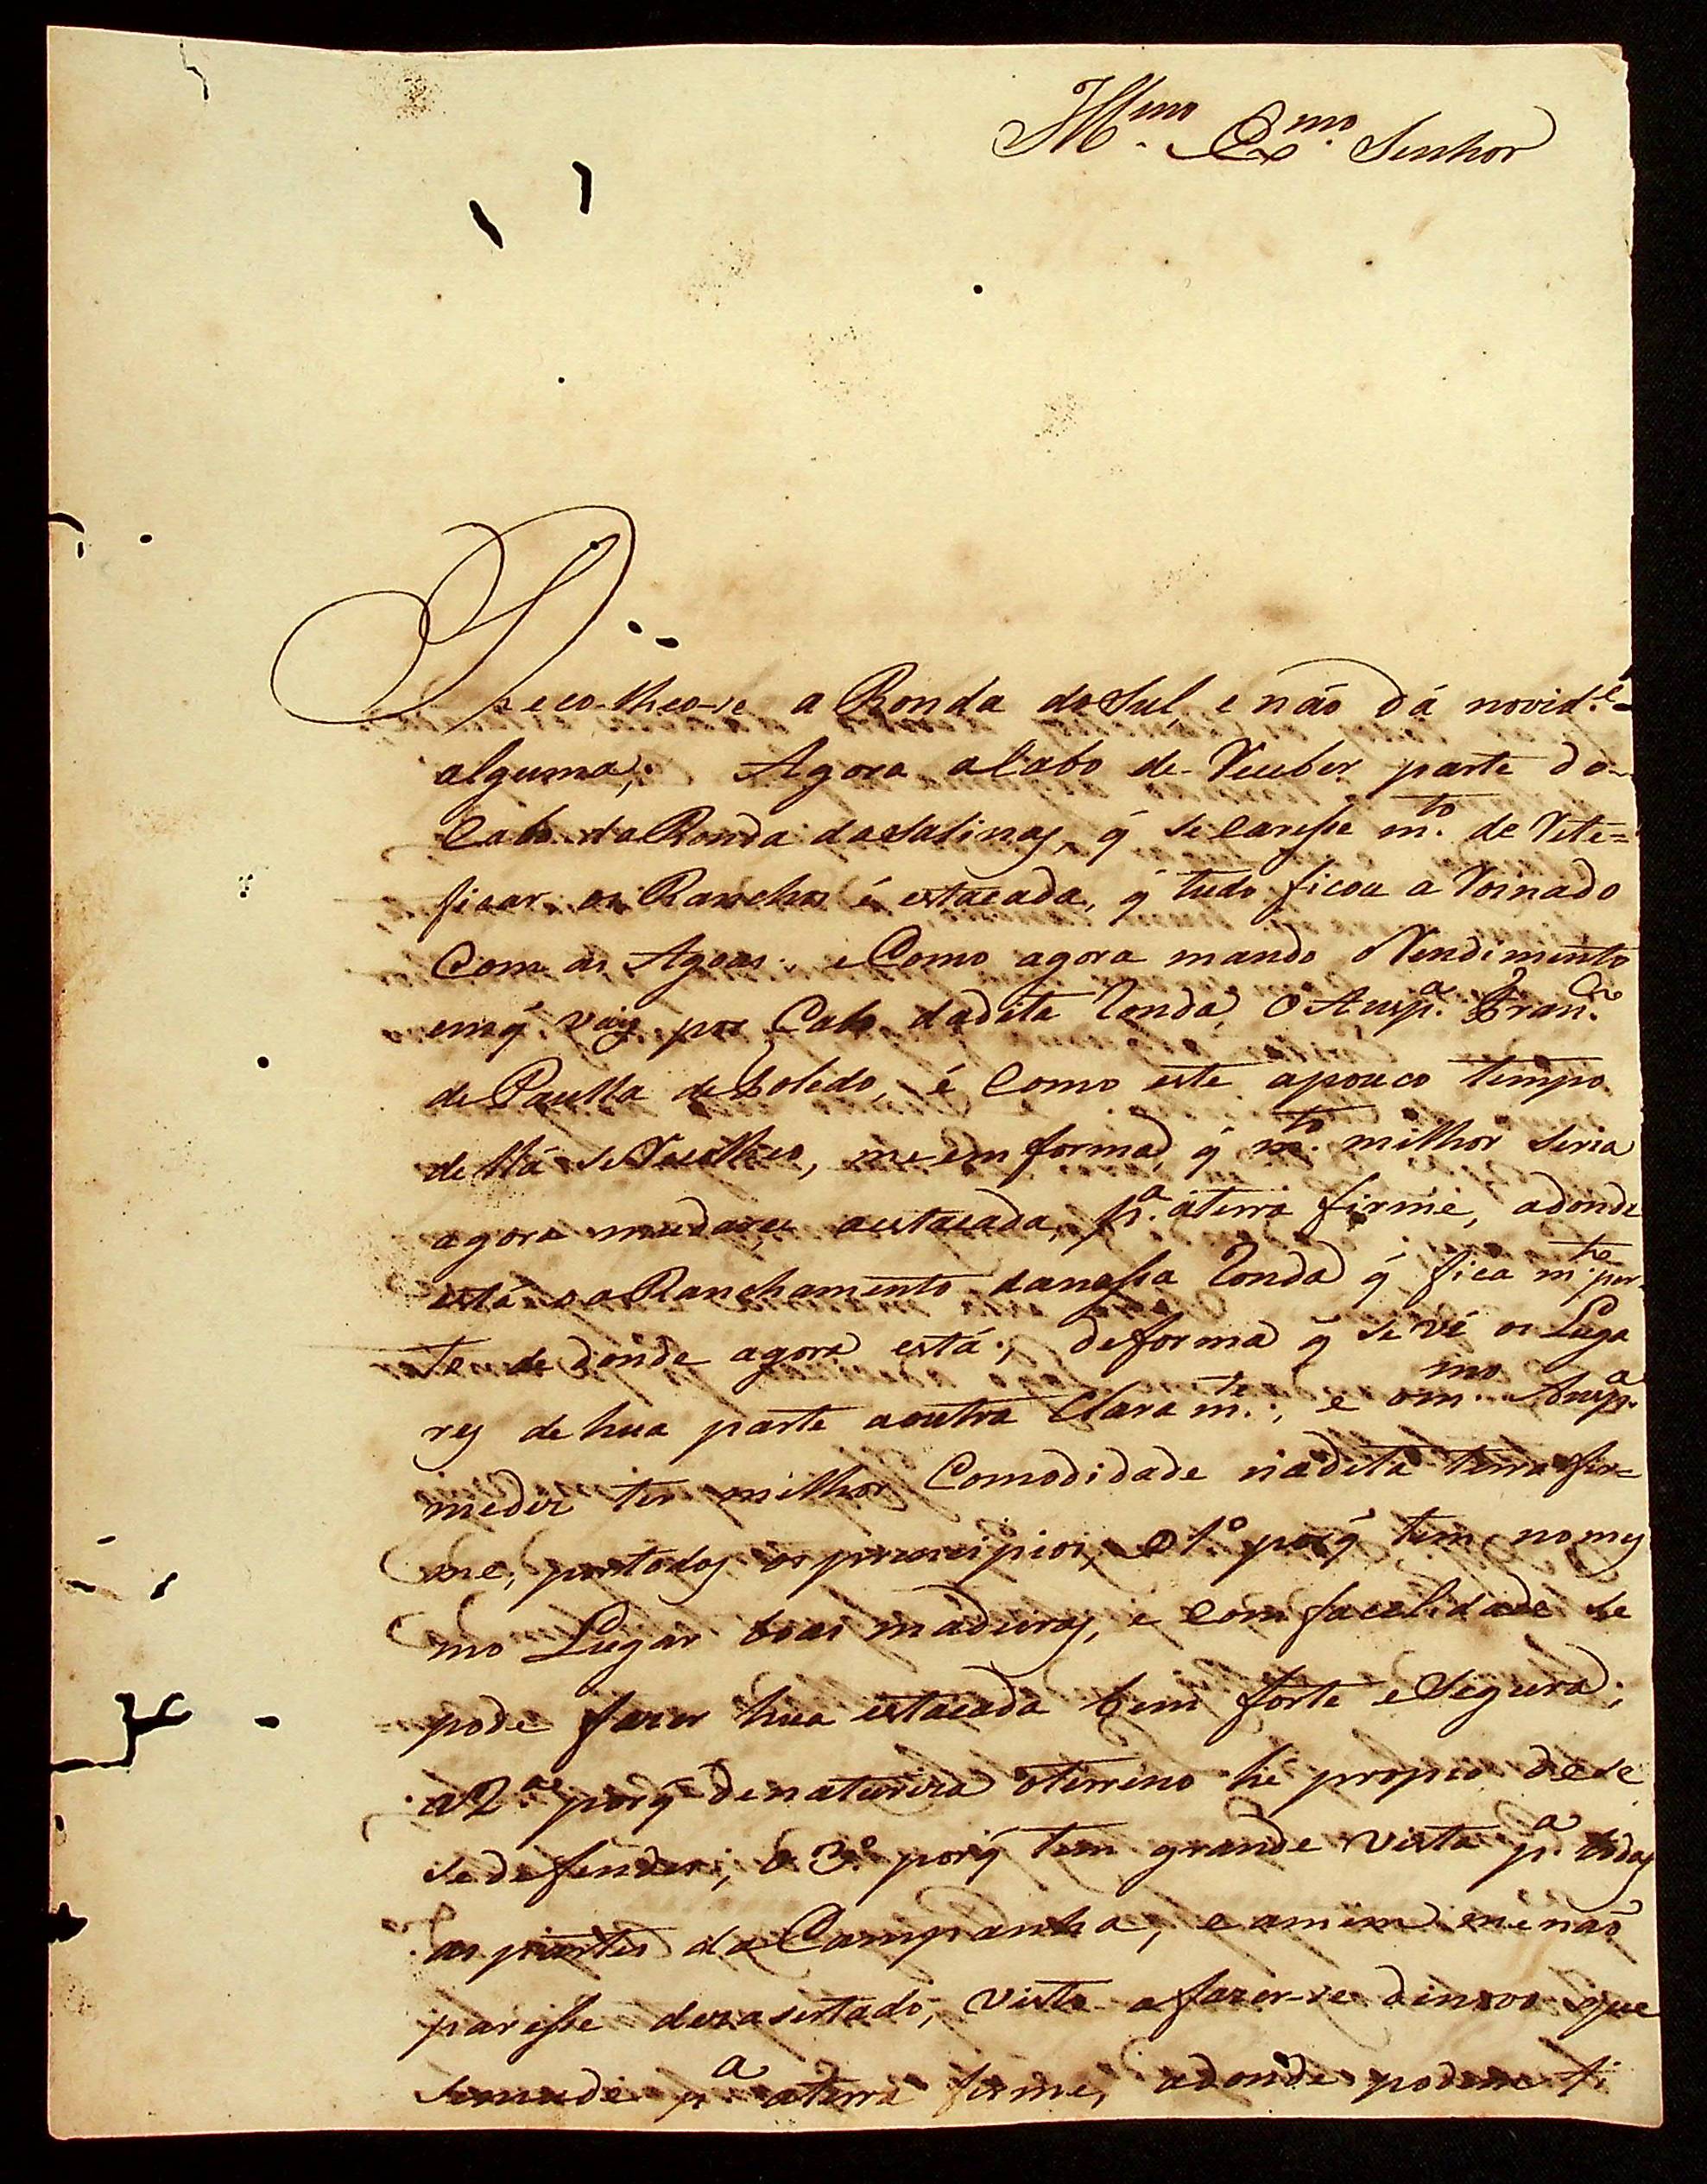 Illmo. Exmo. Senhor
Recolheo-se a Ronda do Sul, e não dá novid.e
alguma; Agora acabo de Receber parte do
Cabo da Ronda das Salinas, q̃ se Caresse m.to de Rete=
ficar os Ranchos é estacada, q̃ tudo ficou a Roinado
Com as Agoas; e Como agora mando o Rendimento
emq̃ vay por Cabo dadita Ronda, O Ansp.a Fran.co
de Paulla de Toledo, é Como este apouco tempo
de llá se Recolheo, me emforma, q̃ m.to milhor seria
agora mudarce aestacada, p.a aterra firme, adonde
está o aRanchamento danossa Ronda q̃ fica m.to per-
to de donde agora está; deforma q̃ se vé os Luga
res de hua parte aoutra Claram.te; e om.mo Ansp.a
mediz ter milhor Comodidade nadita terra fir=
me, portodos os prencipios, o 1º porq̃ tem nomes
mo Lugar boas madeiras, e Com facelidade se
pode fazer hua estacada bem forte e Segura;
a 2.a porq̃ denatureza oterreno hé propio dese
sedefender; o 3º porq̃ tem grande vista p.a todas
as partes da Campanha, e amim me não
paresse dezasertado, visto afazer-se denovo que
semude p.a aterra firme, adonde podem ti